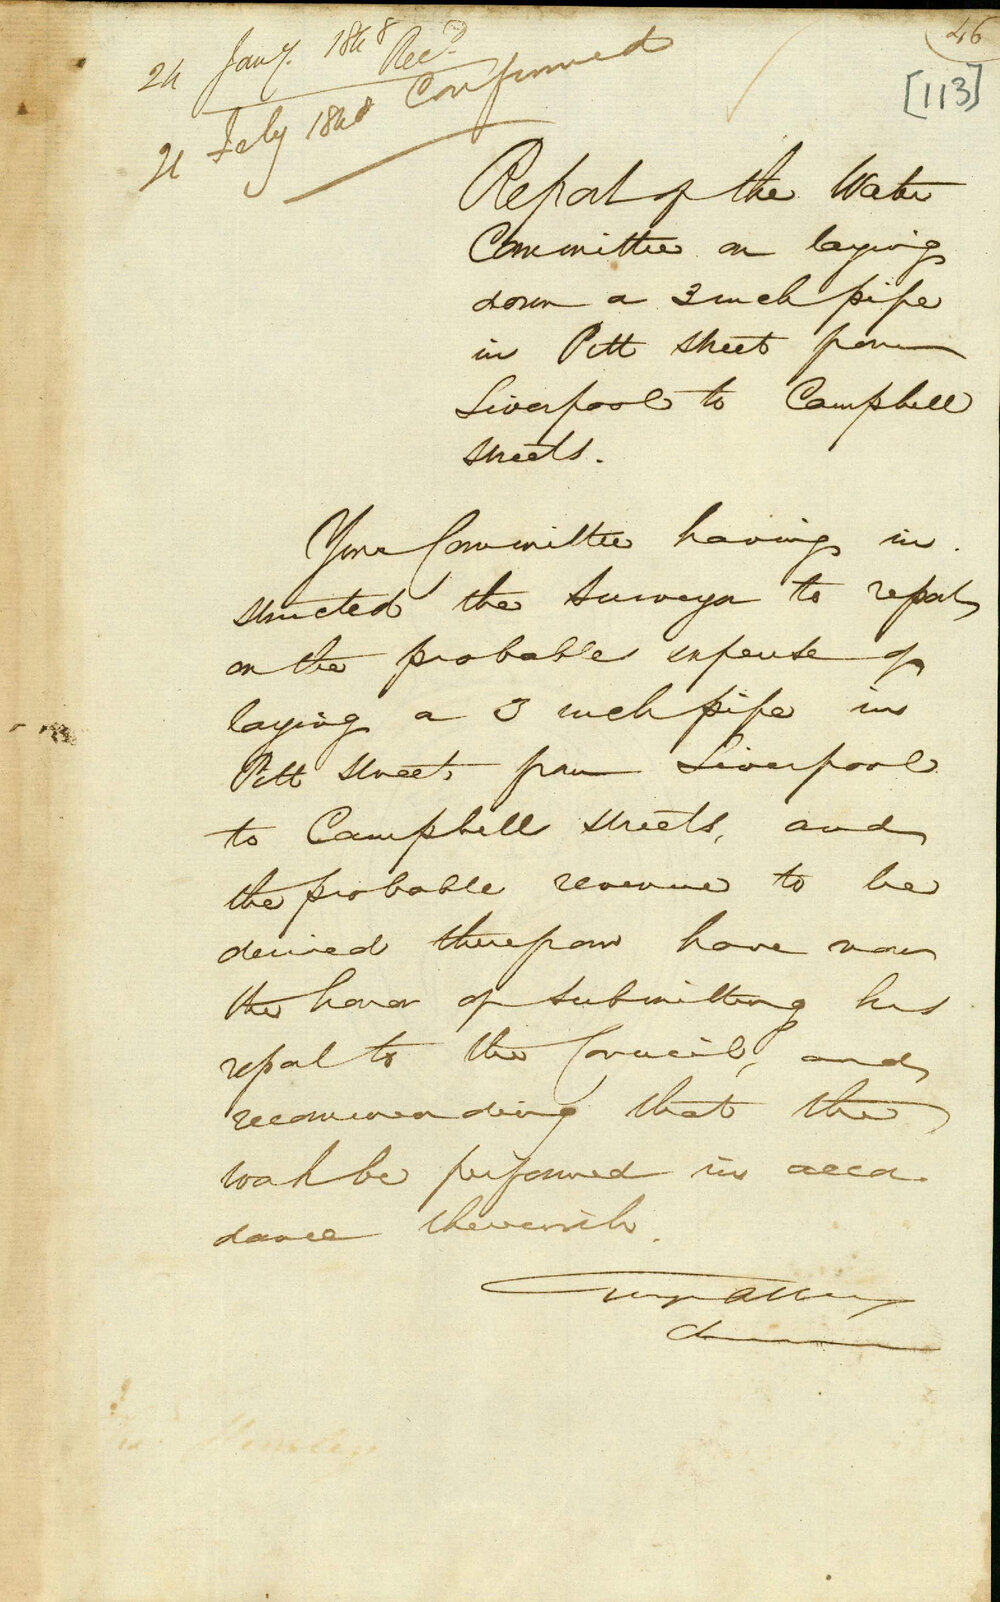 46
[113]
24 Jany. 1848 Recd
21 Feby 1848 Confirmed
Report of the Water
Committee on laying
down a 3 inch pipe
in Pitt Street from
Liverpool to Campbell
Streets.
Your Committee having in
structed the Surveyor to report
on the probable expense of
laying a 3 inch pipe in
Pitt Street from Liverpool
to Campbell Streets, and
the probable revenue to be
derived therefrom have now
the honor of submitting his
report to the Council, and
recommending that the
work be performed in accor
dance therewith.